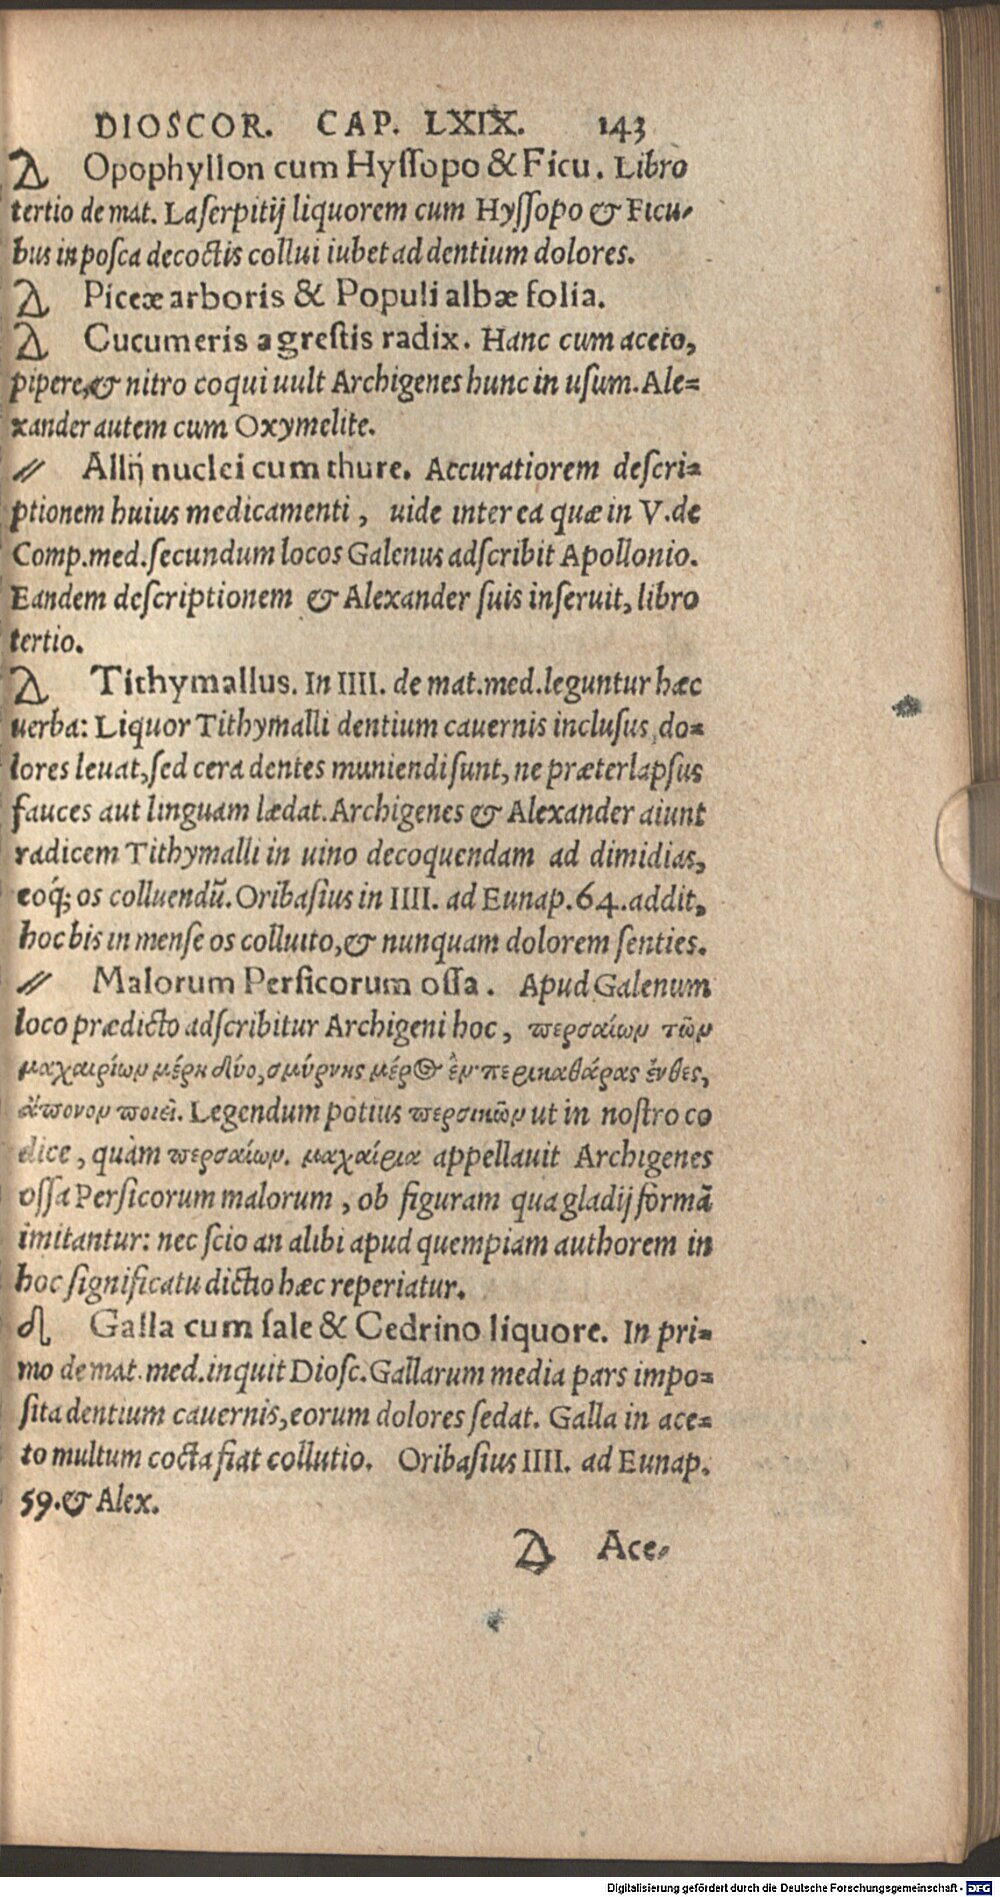 DIOSCOR. CAP. LXIX. 143
Opophyllon cum Hyſſopo & Ficu. Libro
tertio de mat. Laſerpitij liquorem cum Hyſſopo & Ficu-
bus in poſca decoctis collui iubet ad dentium dolores.
Piceæ arboris & Populi albæ folia.
Cucumeris agreſtis radix. Hanc cum aceto,
pipere, & nitro coqui uult Archigenes hunc in uſum. Ale=
xander autem cum Oxymelite.
// Allij nuclei cum thure. Accuratiorem deſcri=
ptionem huius medicamenti, uide inter ea quæ in V. de
Comp. med. ſecundum locos Galenus adſcribit Apollonio.
Eandem deſcriptionem & Alexander ſuis inſeruit, libro
tertio.
Tithymallus. In IIII. de mat. med. leguntur hæc
uerba: Liquor Tithymalli dentium cauernis incluſus, do=
lores leuat, ſed cera dentes muniendi ſunt, ne præterlapſus
fauces aut linguam lædat. Archigenes & Alexander aiunt
radicem Tithymalli in uino decoquendam ad dimidias,
eoq́; os colluendū. Oribaſius in IIII. ad Eunap. 64. addit,
hoc bis in menſe os colluito, & nunquam dolorem ſenties.
// Malorum Perſicorum oſſa. Apud Galenum
loco prædicto adſcribitur Archigeni hoc, περσαίων τῶν
μαχαιρίων μέρη δύο, σμύρνης μέρος ἓν περικαθάρας ἔνθες,
ἄπονον ποιεῖ. Legendum potius περσικῶν ut in noſtro co
dice, quàm περσαίων. μαχαίρια appellauit Archigenes
oſſa Perſicorum malorum, ob figuram qua gladij formā
imitantur: nec ſcio an alibi apud quempiam authorem in
hoc ſignificatu dictio hæc reperiatur.
Galla cum ſale & Cedrino liquore. In pri=
mo de mat. med. inquit Dioſc. Gallarum media pars impo=
ſita dentium cauernis, eorum dolores ſedat. Galla in ace=
to multum cocta fiat collutio. Oribaſius IIII. ad Eunap.
59. & Alex.
Ace-
Digitalisierung gefördert durch die Deutsche Forschungsgemeinschaft - DFG